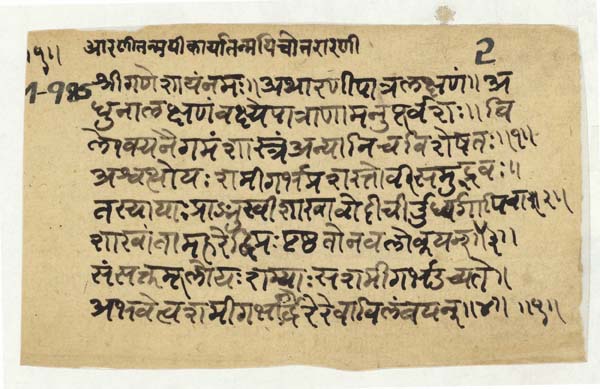 १५॥ आरणीतन्मयीकार्यातन्मयिचोत्तरारणी 2
श्रीगणेशायनमः॥ अथारणीपात्रलक्षणं॥ अ
धुनालक्षणंवक्ष्येपात्राणामनुपूर्वशः॥ वि
लोक्यनैगमंशास्त्रंअन्यानिचविशेषतः॥१॥
अश्वत्थोयःशमीगर्भप्रशस्तोर्वीसमुद्भवः॥
तस्यायाःप्राङ्मुखीशाखावोदीचीर्वोर्ध्वगापिवा॥२॥
शाखांतामाहरेद्विप्रःपृष्ठतोनवलोकयन्॥३॥
संसक्तमूलोयःशम्याःसशमीगर्भउच्यते॥
अभावेत्वशमीगर्भाद्धरेदेवाविलंबयन्॥४॥ ॥५॥